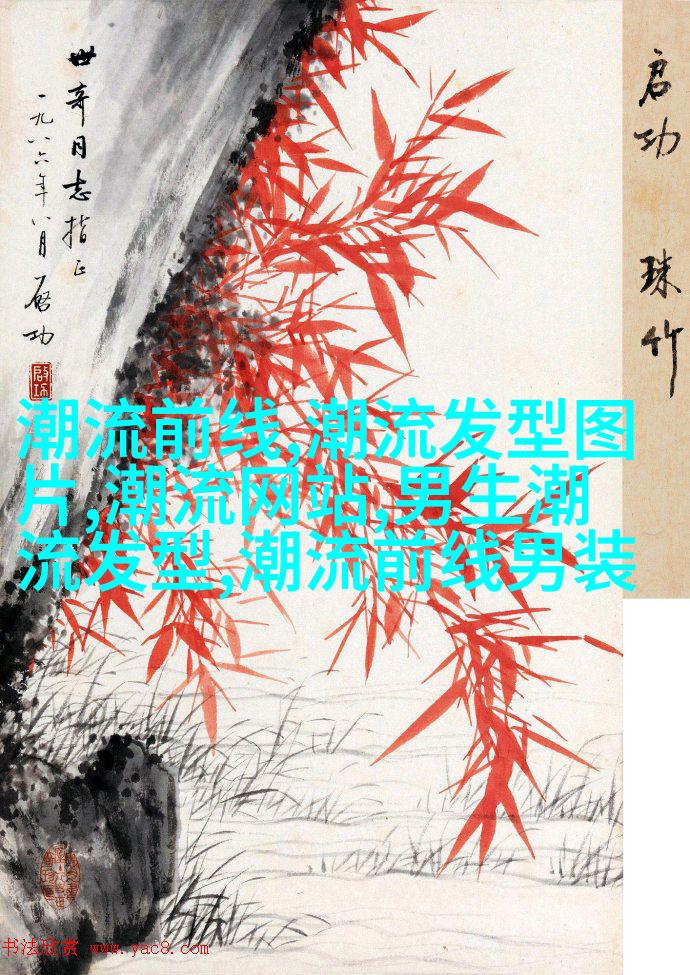 启功 珠竹
世奇同志指正
一九八六年八月 启功
启功
潮流前线,潮流发型图
片,潮流网站,男生潮
流发型,潮流前线男装
书法欣赏 www.yac8.com